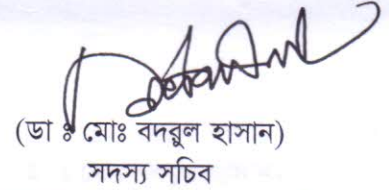 (ডা ঃ মোঃ বদরুল হাসান)
সদস্য সচিব